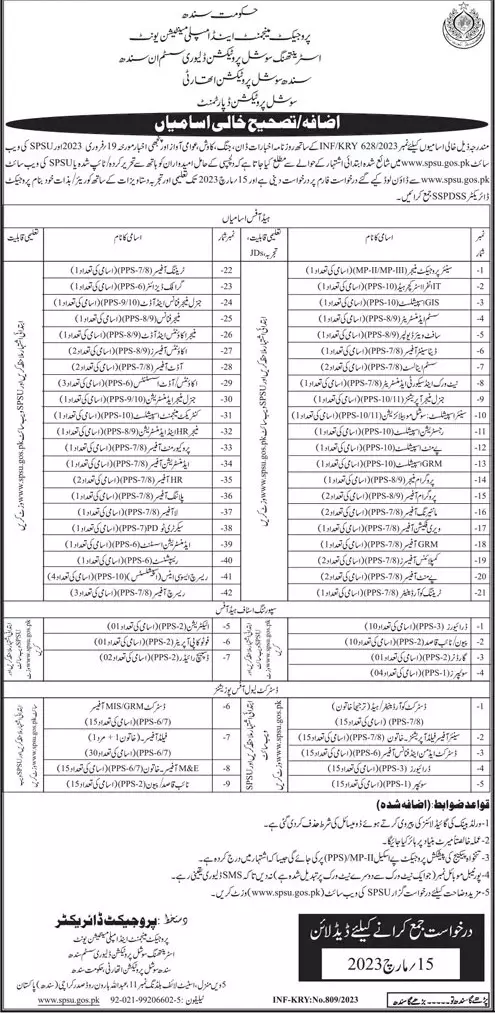 حکومت سندھ
پروجیکٹ مینجمنٹ اینڈ امپلی مینٹیشن یونٹ
اسٹرینتھننگ سوشل پروٹیکشن ڈلیوری سسٹم ان سندھ
سندھ سوشل پروٹیکشن اتھارٹی
سوشل پروٹیکشن ڈپارٹمنٹ
اضافہ/تصحیح خالی اسامیاں
مندرجہ ذیل خالی اسامیوں کیلئے نمبر INF/KRY 628/2023 کے ساتھ روزنامہ اخبارات ڈان، جنگ، کاوش، عوامی آواز اور ایکسپریس اخبار مورخہ 19/فروری 2023 اور SPSU کی ویب
سائٹ www.spsu.gos.pk میں شائع شدہ ابتدائی اشتہار کے حوالے سے مطلع کیا جاتا ہے کہ دلچسپی کے حامل امیدواران کو ہاتھ سے تحریر کردہ/ٹائپ شدہ یا SPSU کی ویب سائٹ
www.spsu.gos.pk سے ڈاؤن لوڈ کیے گئے درخواست فارم پر درخواست دینی ہے اور 15/مارچ 2023 تک تعلیمی اور تجربہ دستاویزات کے ساتھ کوریئر/بذات خود بنام پروجیکٹ
ڈائریکٹر SSPDSS جمع کرائیں۔
ہیڈ آفس اسامیاں
نمبر شمار اسامی کا نام تعلیمی قابلیت، تجربہ، JDs نمبر شمار اسامی کا نام تعلیمی قابلیت
1- سینئر پروجیکٹ منیجر (MP-II/MP-III) (اسامی کی تعداد 1)
2- IT انفرااسٹرکچر ہیڈ (PPS-10) (اسامی کی تعداد 1)
3- GIS اسپیشلسٹ (PPS-10) (اسامی کی تعداد 1)
4- سسٹم ایڈمنسٹریٹر (PPS-8/9) (اسامی کی تعداد 1)
5- سافٹ ویئر ڈیولپر (PPS-8/9) (اسامی کی تعداد 1)
6- ڈیٹا بیس آفیسر (PPS-7/8) (اسامی کی تعداد 1)
7- سسٹم اینالسٹ (PPS-7/8) (اسامی کی تعداد 2)
8- نیٹ ورک اینڈ سیکورٹی ایڈمنسٹریٹر (PPS-7/8) (اسامی کی تعداد 1)
9- جنرل منیجر آپریشنز (PPS-10/11) (اسامی کی تعداد 1)
10- سینئر اسپیشلسٹ، سوشل موبلائزیشن (PPS-10/11) (اسامی کی تعداد 1)
11- رجسٹریشن اسپیشلسٹ (PPS-10) (اسامی کی تعداد 1)
12- پے منٹ اسپیشلسٹ (PPS-10) (اسامی کی تعداد 1)
13- GRM اسپیشلسٹ (PPS-10) (اسامی کی تعداد 1)
14- پروگرام منیجر (PPS-8/9) (اسامی کی تعداد 1)
15- پروگرام آفیسر (PPS-7/8) (اسامی کی تعداد 2)
16- مانیٹرنگ آفیسر (PPS-7/8) (اسامی کی تعداد 2)
17- ویری فکیشن آفیسر (PPS-7/8) (اسامی کی تعداد 1)
18- GRM آفیسر (PPS-7/8) (اسامی کی تعداد 1)
19- کمپلائنس آفیسرز (PPS-7/8) (اسامی کی تعداد 2)
20- پے منٹ آفیسر (PPS-7/8) (اسامی کی تعداد 2)
21- ٹریننگ کوآرڈینیٹر (PPS-7/8) (اسامی کی تعداد 1)
22- ٹریننگ آفیسر (PPS-7/8) (اسامی کی تعداد 1)
23- گرافک ڈیزائنر (PPS-6) (اسامی کی تعداد 1)
24- جنرل منیجر فنانس اینڈ آڈٹ (PPS-9/10) (اسامی کی تعداد 1)
25- منیجر فنانس (PPS-8/9) (اسامی کی تعداد 1)
26- منیجر اکاؤنٹس اینڈ آڈٹ (PPS-8/9) (اسامی کی تعداد 1)
27- اکاؤنٹس آفیسرز (PPS-8/9) (اسامی کی تعداد 2)
28- آڈٹ آفیسر (PPS-7/8) (اسامی کی تعداد 2)
29- اکاؤنٹس/آڈٹ اسسٹنٹس (PPS-6) (اسامی کی تعداد 3)
30- جنرل منیجر ایڈمنسٹریشن (PPS-9/10) (اسامی کی تعداد 1)
31- کنٹریکٹ مینجمنٹ اسپیشلسٹ (PPS-10) (اسامی کی تعداد 1)
32- منیجر HR/اینڈ ایڈمنسٹریشن (PPS-8/9) (اسامی کی تعداد 1)
33- پروکیورمنٹ آفیسر (PPS-7/8) (اسامی کی تعداد 1)
34- ایڈمنسٹریشن آفیسر (PPS-7/8) (اسامی کی تعداد 1)
35- HR آفیسر (PPS-7/8) (اسامی کی تعداد 2)
36- پلاننگ آفیسر (PPS-7/8) (اسامی کی تعداد 1)
37- لا آفیسر (PPS-7/8) (اسامی کی تعداد 1)
38- سیکرٹری ٹو PD (PPS-7) (اسامی کی تعداد 1)
39- ایڈمنسٹریشن اسسٹنٹ (PPS-6) (اسامی کی تعداد 1)
40- ریسپشنسٹ (PPS-6) (اسامی کی تعداد 1)
41- ریسرچ ایسوسی ایٹس (اسپیشلسٹس) (PPS-10) (اسامی کی تعداد 4)
42- ریسرچ آفیسر (PPS-7/8) (اسامی کی تعداد 3)
سپورٹنگ اسٹاف ہیڈ آفس
1- ڈرائیورز (PPS-3) (اسامی کی تعداد 10)
2- پیون/نائب قاصد (PPS-2) (اسامی کی تعداد 10)
3- گارڈنر (PPS-2) (اسامی کی تعداد 01)
4- سوئپرز (PPS-1) (اسامی کی تعداد 04)
5- الیکٹریشن (PPS-2) (اسامی کی تعداد 01)
6- فوٹو کاپی آپریٹر (PPS-2) (اسامی کی تعداد 01)
7- ڈسپیچ رائیڈر (PPS-2) (اسامی کی تعداد 02)
ڈسٹرکٹ لیول آفس پوزیشنز
1- ڈسٹرکٹ کوآرڈینیٹر/ہیڈ (ترجیحاً خاتون)
(PPS-7/8) (اسامی کی تعداد 15)
2- سینئر آفیسر آپریشنز۔خاتون (PPS-7/8) (اسامی کی تعداد 15)
3- ڈسٹرکٹ ایڈمن اینڈ فنانس آفیسر (PPS-6) (اسامی کی تعداد 15)
4- ڈرائیورز (PPS-3) (اسامی کی تعداد 15)
5- سوئپر (PPS-1) (اسامی کی تعداد 15)
6- ڈسٹرکٹ MIS/GRM آفیسر
(PPS-6/7) (اسامی کی تعداد 15)
7- فیلڈ آفیسر۔خاتون 1 + مرد 1)
(PPS-6/7) (اسامی کی تعداد 30)
8- M&E آفیسر۔خاتون (PPS-6/7) (اسامی کی تعداد 15)
9- نائب قاصد/پیون (PPS-2) (اسامی کی تعداد 15)
قواعد ضوابط: (اضافہ شدہ)
1- ورلڈ بینک کی گائیڈ لائنز کی پیروی کرتے ہوئے ڈومیسائل کی شرط حذف کر دی گئی ہے۔
2- عملہ خالصتاً میرٹ بنیاد پر ہائر کیا جائیگا۔
3- تنخواہ پیکیج کی پیشکش پروجیکٹ پے اسکیل PPS)/MP-II) پر کی جائے گی جیسا کہ اشتہار میں درج کردہ ہے۔
4- پورٹیبل موبائل نمبر (جو ایک نیٹ ورک سے دوسرے نیٹ ورک پر تبدیل شدہ ہے) نہ دیں تاکہ SMS ڈلیوری یقینی رہے۔
5- مزید وضاحت کیلئے درخواست گزار SPSU کی ویب سائٹ (www.spsu.gos.pk) وزٹ کریں۔
درخواست جمع کرانے کیلئے ڈیڈ لائن
15/مارچ 2023
دستخط: پروجیکٹ ڈائریکٹر
پروجیکٹ مینجمنٹ اینڈ امپلی مینٹیشن یونٹ
اسٹرینتھننگ سوشل پروٹیکشن ڈلیوری سسٹم سندھ
سندھ سوشل پروٹیکشن اتھارٹی، حکومت سندھ
5ویں منزل، اسٹیٹ لائف بلڈنگ نمبر 11، عبداللہ ہارون روڈ صدر کراچی (سندھ) پاکستان
ٹیلیفون: 92-021-99206602-5 www.spsu.gos.pk
INF-KRY:No.809/2023
پڑھے گا سندھ تو۔ بڑھے گا سندھ